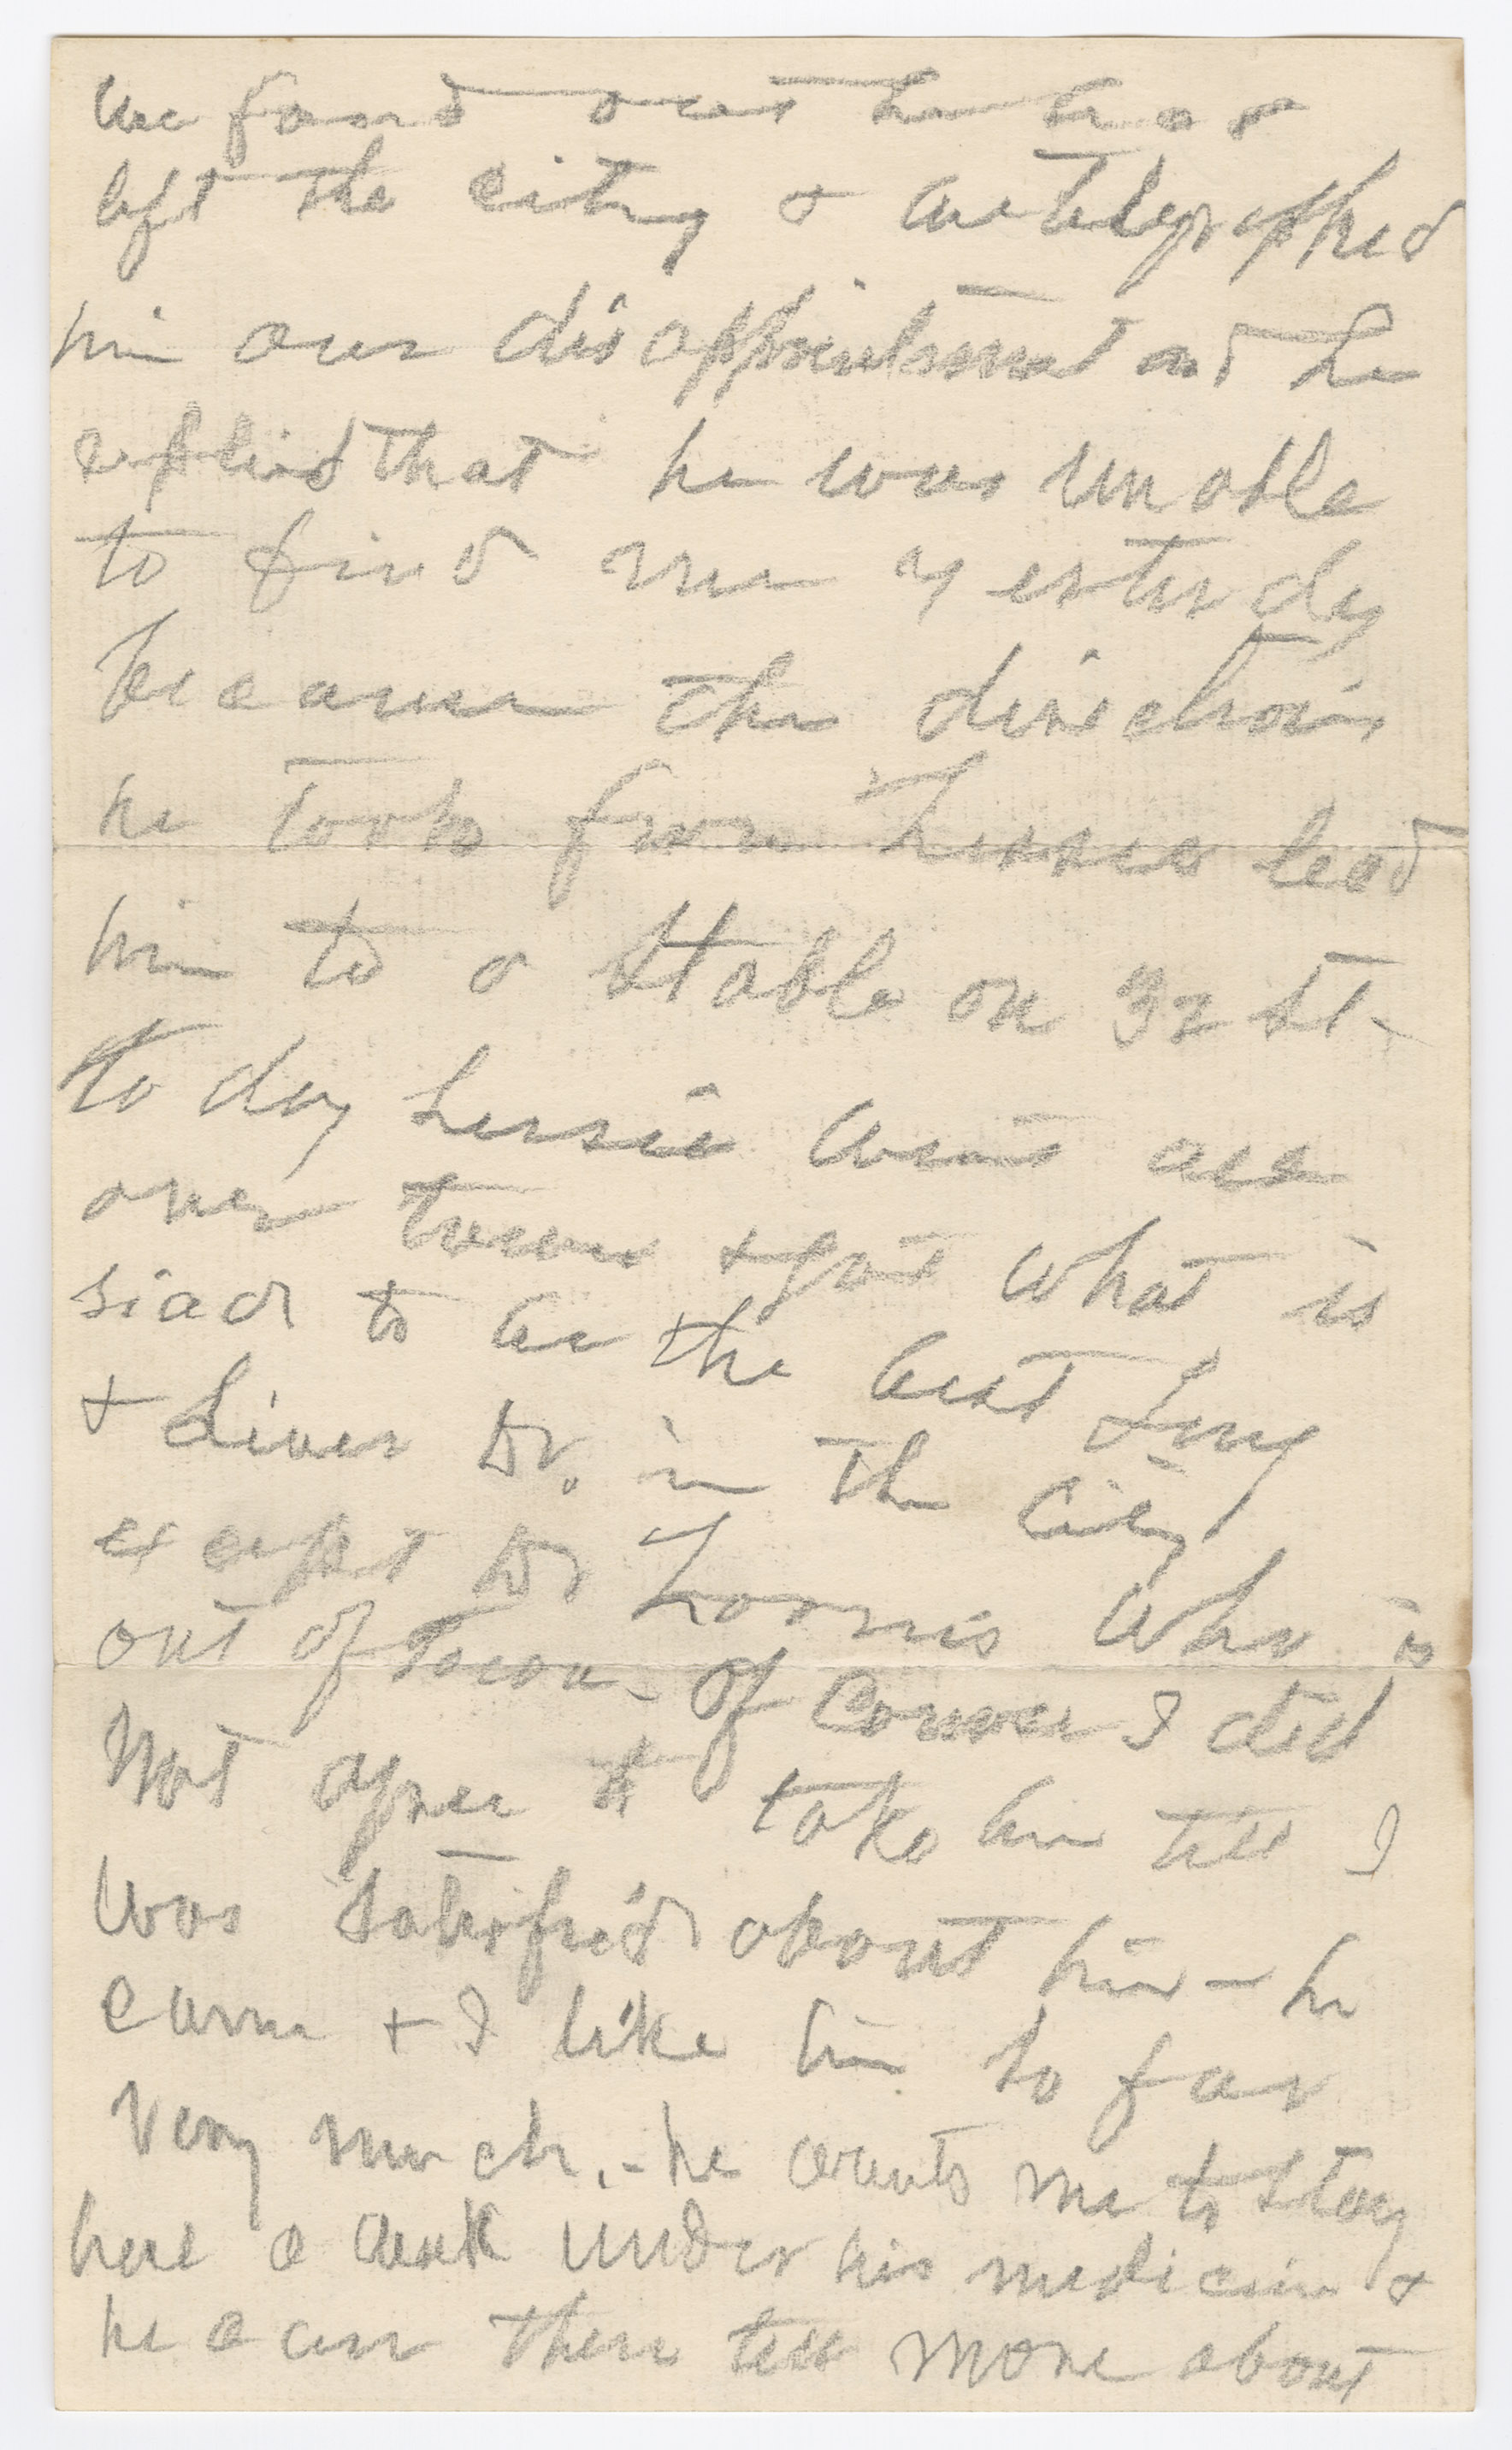 we found out he had
left the city & we telegraphed
him our disappointment and he
replied that he was unable
to find me yesterday
because the directions
he took from Lessie lead
him to a stable on 32 St -
to day Lessie went all
over town & got what is
siad to be the best Lung
& Liver Dr. in the City
except Dr Loomis who is
out of Town - Of Course I did
Not agree to take him till I
was satisfied about him - he
came + I like him so far
Very much. - he wants me to stay
here a week under his medicine &
he can then tell more about